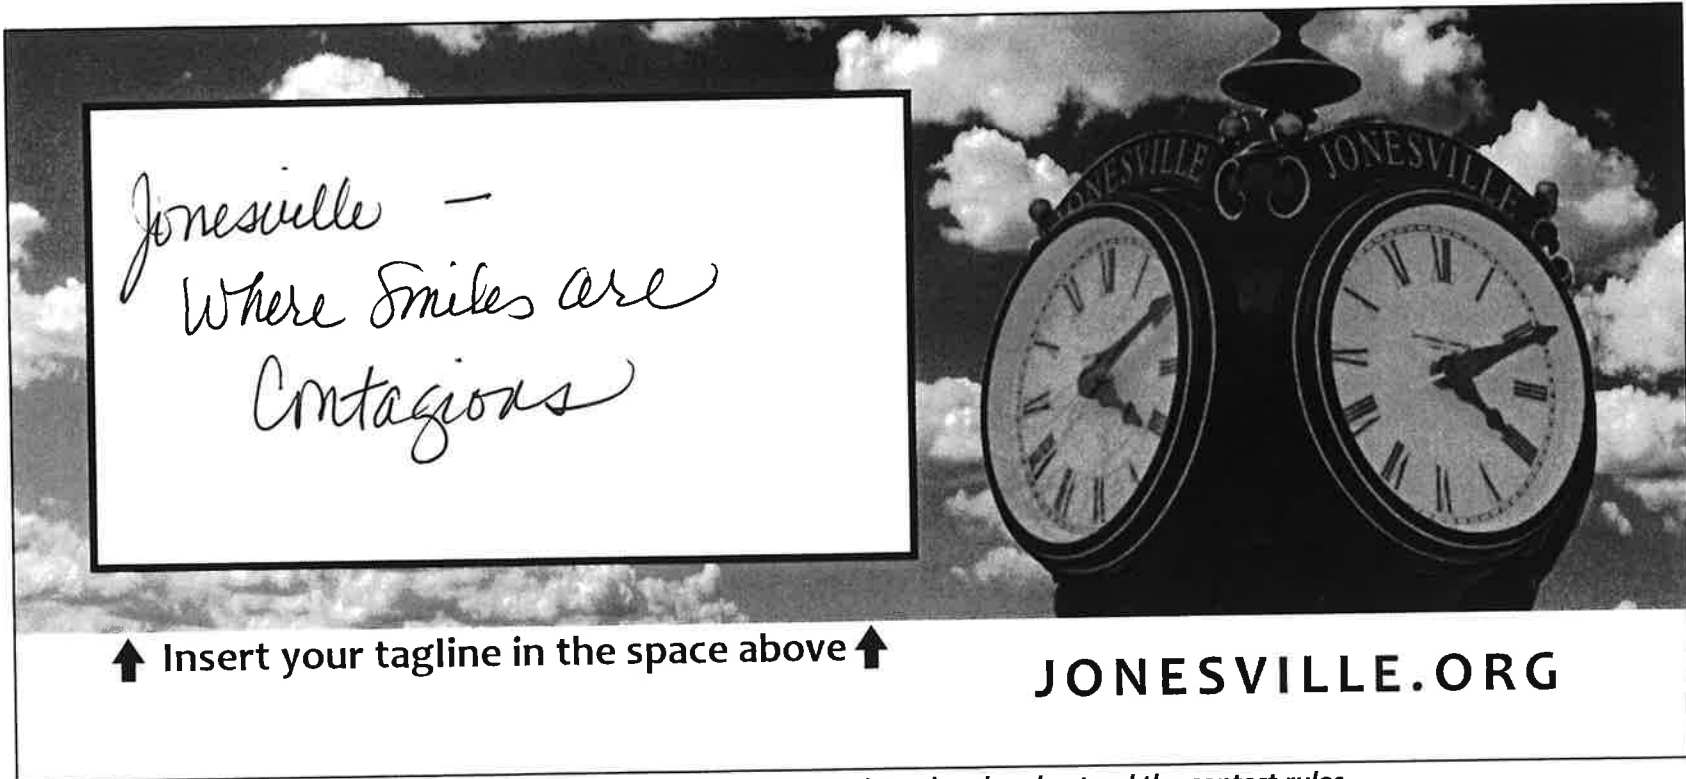 Jonesville —
Where Smiles are
Contagious
JONESVILLE
JONESVILLE
Insert your tagline in the space above
JONESVILLE.ORG
the contest rules